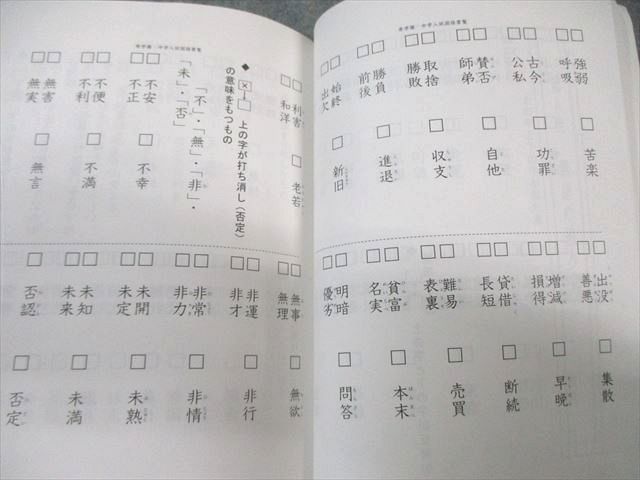 □強弱
□呼吸
□苦楽
□古今
□公私
□功罪
□賛否
□師弟
□自他
□取捨
□勝敗
□収支
□勝負
□前後
□進退
□始終
□出欠
□新旧
□出没
□善悪
□集散
□増減
□損得
□早晩
□貸借
□長短
□断続
□難易
□表裏
□売買
□貧富
□名実
□本末
□明暗
□優劣
□問答
□利害
□和洋
□老若
◆ 上の字が打ち消し（否定）
の意味をもつもの
「不」・「無」・「非」・
「未」・「否」
□不安
□不正
□不幸
□不便
□不利
□不満
□無害
□無実
□無言
□無事
□無理
□無欲
□非運
□非才
□非行
□非常
□非力
□非情
□未開
□未定
□未熟
□未知
□未来
□未満
□否認
□否定